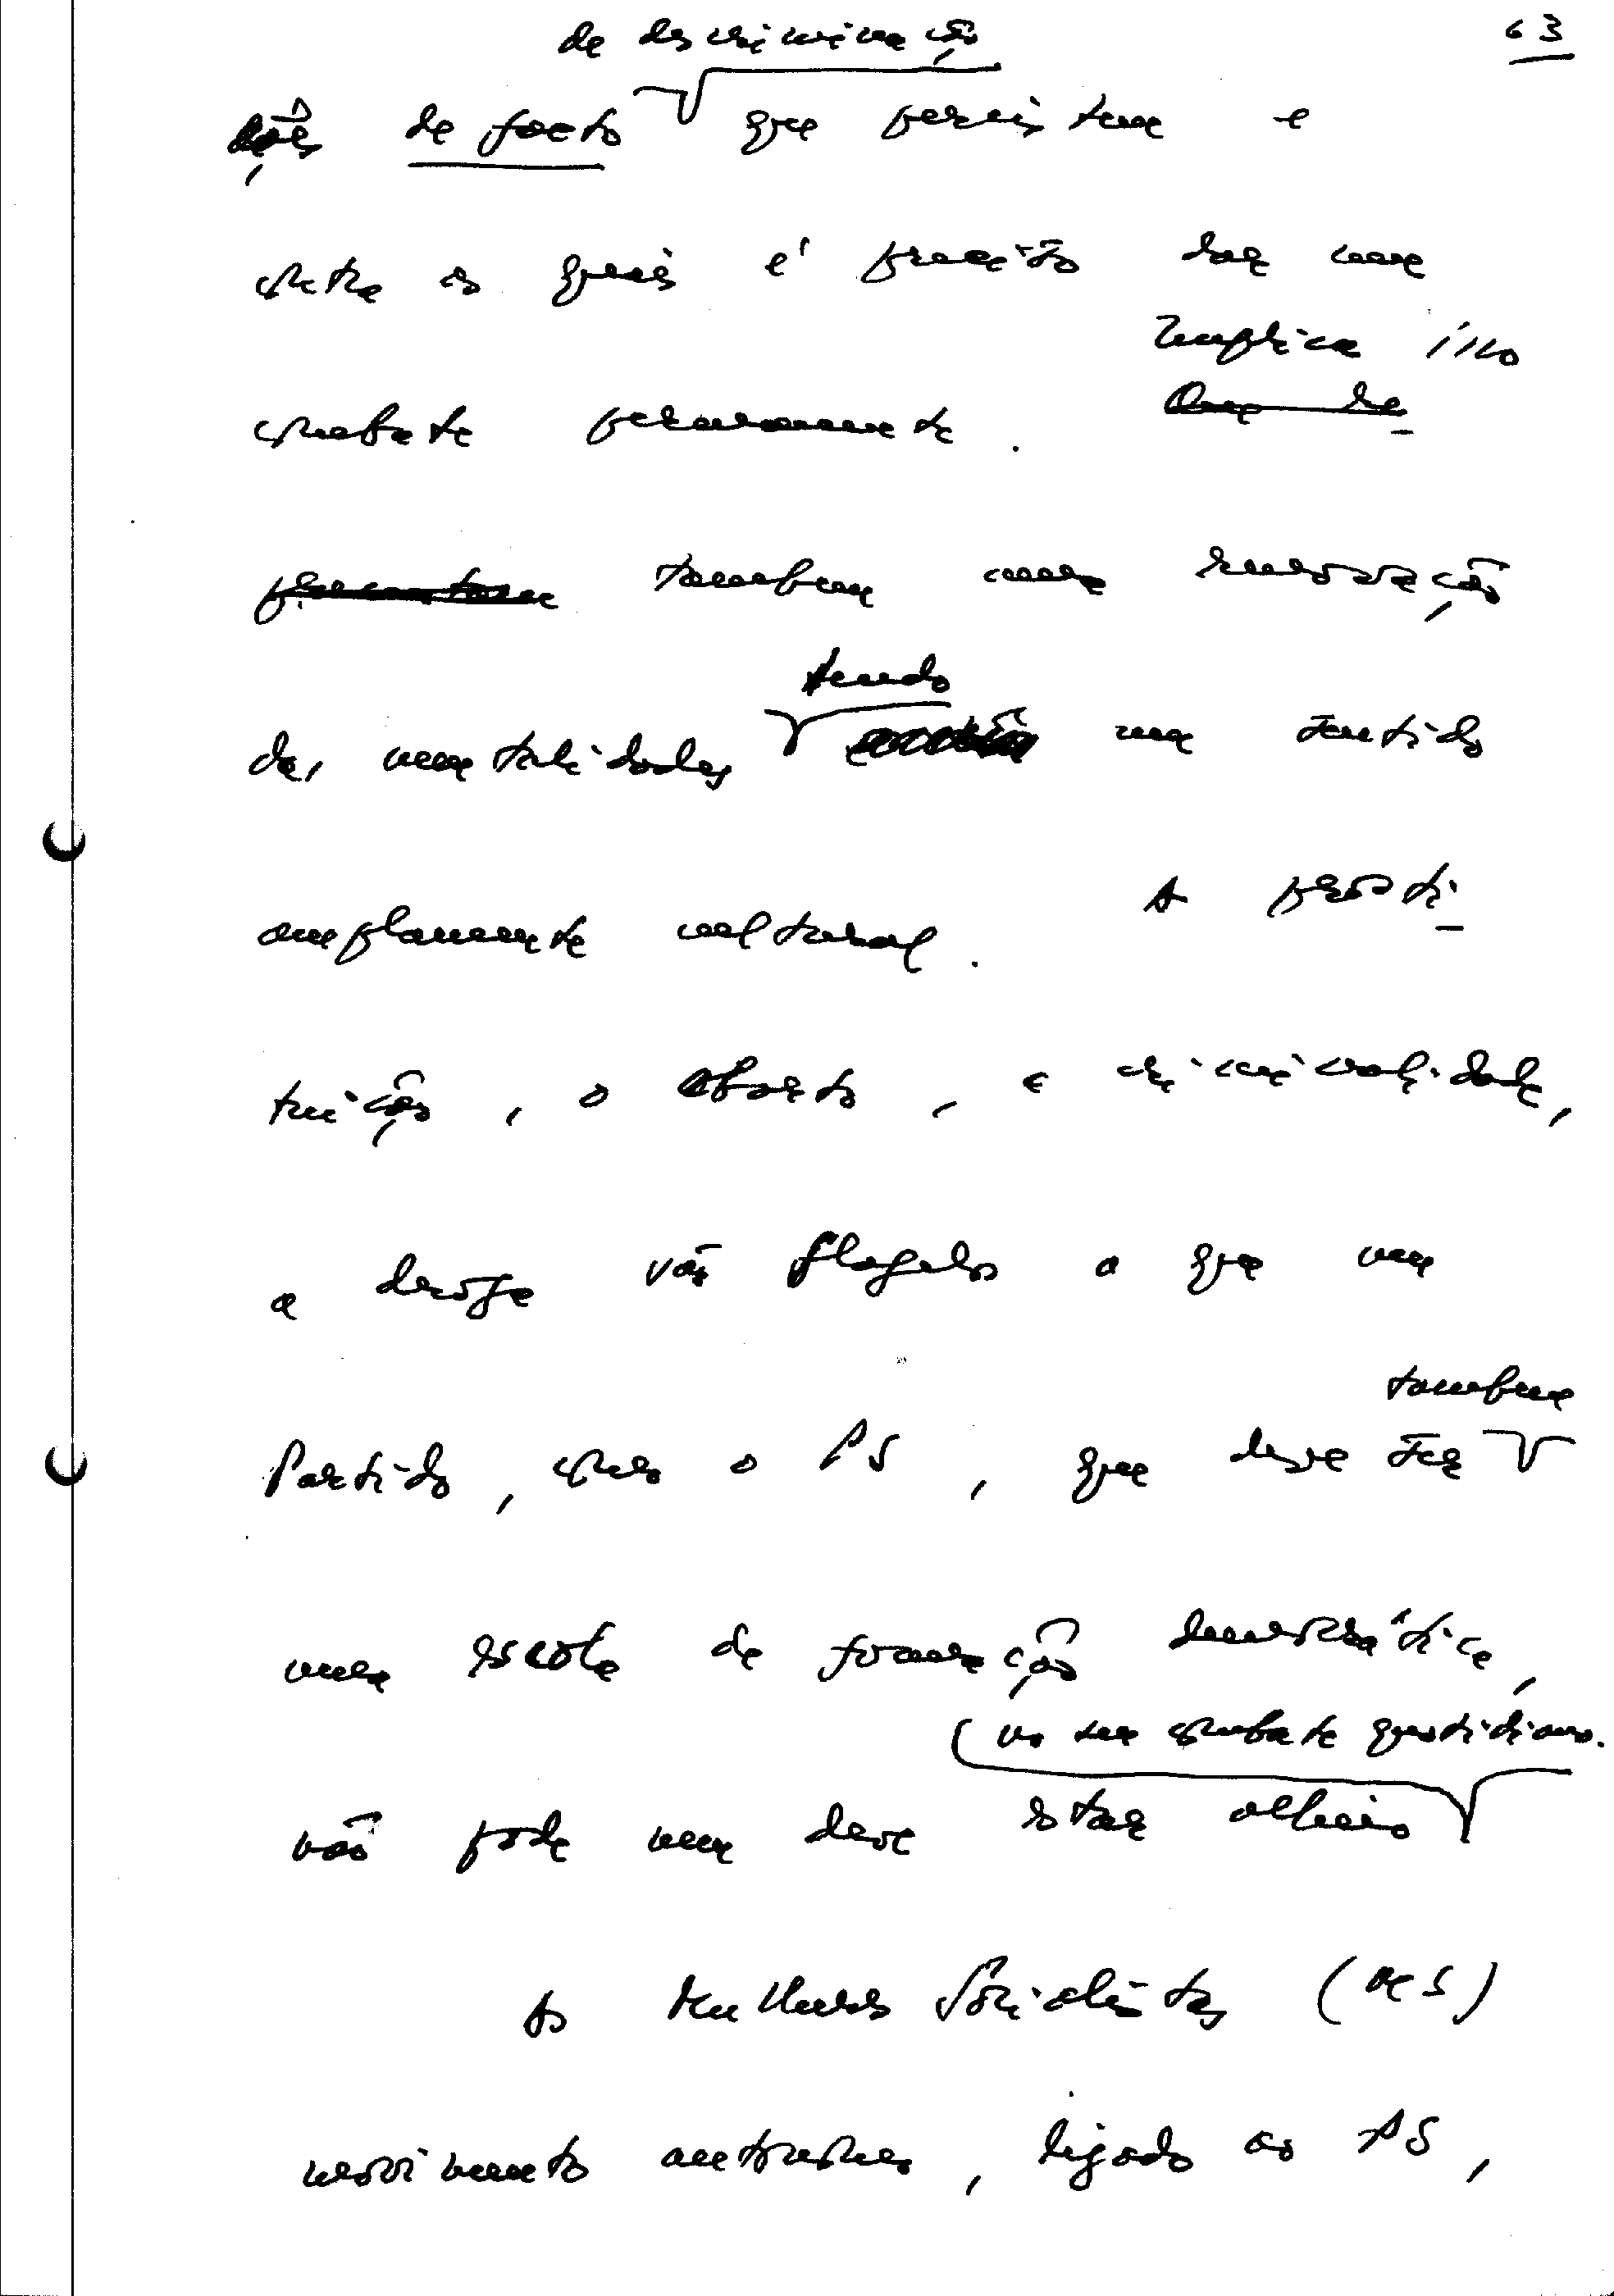 63
de descriminação
ções de facto que persistem e
contra os quais é preciso dar um
Implica isso
combate permanente. Que re-
presentam também uma renovação
tendo
das mentalidades num sentido
amplamente cultural. A prosti-
tuição, o aborto, a criminalidade,
a droga são flagelos a que um
também
Partido, como o PS, que deve ser
uma escola de formação democrática,
no seu combate quotidiano.
não pode nem deve estar alheio
As Mulheres Socialistas (MS)
movimento autónomo, ligado ao PS,